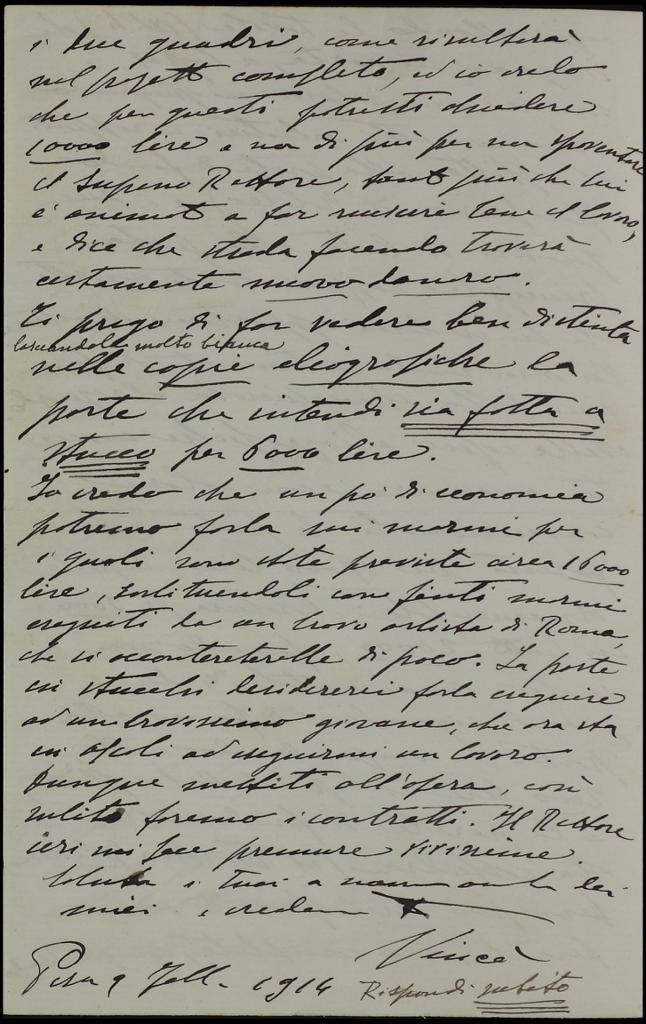 i due quadri, come risulterà
nel progetto completo, ed io credo
che per questi potresti chiedere
10000 lire e non di più per non spaventare
il Supremo Rettore, tanto più che lui
è animato a far riuscire bene il lavoro,
e dice che strada facendo troverà
certamente nuovo danaro.
Ti prego di far vedere ben distinta
lasciandola molto bianca
nelle copie eliografiche la
parte che intendi sia fatta a
stucco per 6000 lire.
Io credo che un pò di economia
potremo farla sui marmi per
i quali sono state previste circa 16000
lire, sostituendoli con finti marmi
eseguiti da un bravo artista di Roma,
che si accontenterebbe di poco. La parte
in stucchi desidererei farla eseguire
ad un bravissimo giovane, che ora sta
in Ascoli ad eseguirmi un lavoro.
Dunque mettiti all'opera, così
subito faremo i contratti. Il Rettore
ieri mi fece premure vivissime.
Saluta i tuoi a nome anche dei
miei e
Pisa 9 1914
Rispondi subito